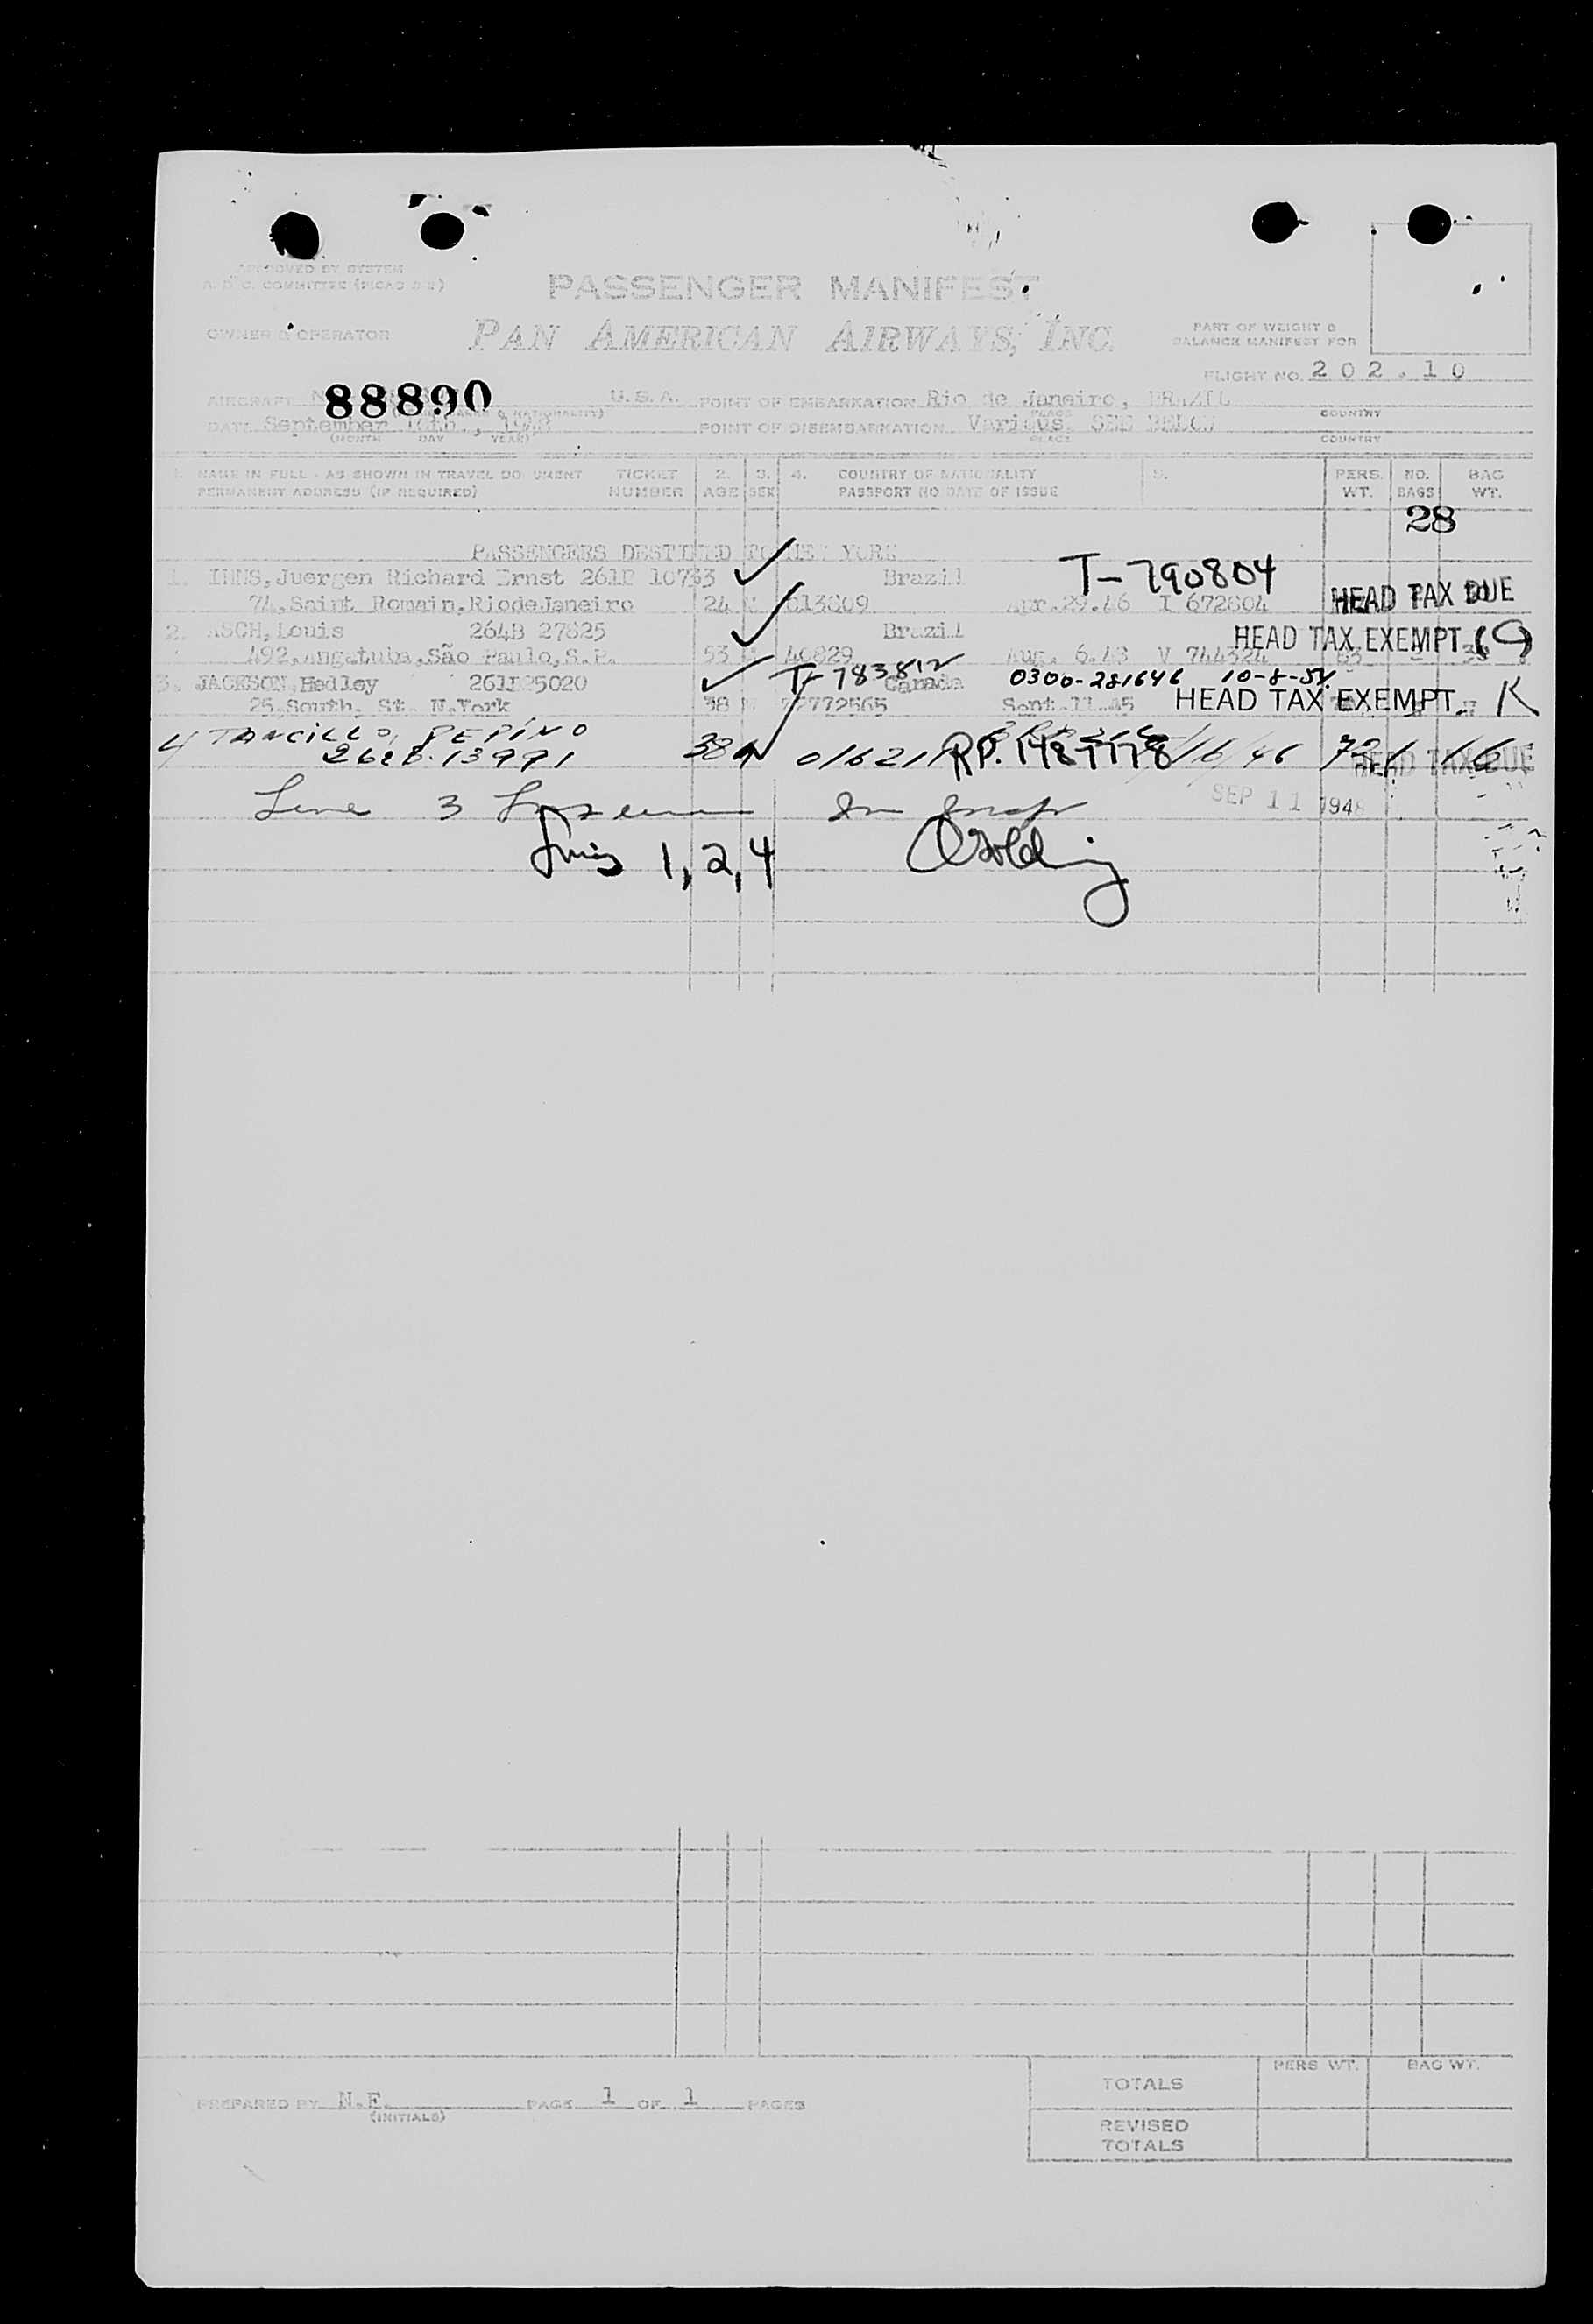 APPROVED BY SYSTEM
A. D. C. COMMITTEE (PICAO
PASSENGER MANIFEST
OWNER & OPERATOR
PAN AMERICAN AIRWAYS, INC.
PART OF WEIGHT &
BALANCE MANIFEST FOR
FLIGHT NO. 202.10
AIRCRAFT 88890 U.S.A. POINT OF EMBARKATION Rio de Janeiro, BRAZIL
& NATIONALITY) PLACE COUNTRY
DATE September 10th., 1948 POINT OF DISEMBARKATION Various. SEE BELOW
(MONTH DAY YEAR) PLACE COUNTRY
1. NAME IN FULL - AS SHOWN IN TRAVEL DOCUMENT TICKET 2. 3. 4. COUNTRY OF NATIONALITY 5. PERS. NO. BAG
PERMANENT ADDRESS (IF REQUIRED) NUMBER AGE SEX PASSPORT NO DATE OF ISSUE WT. BAGS WT.
28
PASSENGERS DESTINED TO NEW YORK
T-790804
1. IHNS, Juergen Richard Ernst 261B 10733 Brazil
74, Saint Romain, RiodeJaneiro 24 M 613809 Apr.29.46 I 672804 HEAD TAX DUE
2. ASCH, Louis 264B 27825 Brazil HEAD TAX EXEMPT
492, Angatuba, São Paulo, S.P. 53 M 40829 Aug. 6.48 V 744324 83
T-783812 0300-281646 10-8-54
3. JACKSON, Hedley 5020 Canada
25, South. St. N.York 38 M 72772565 Sept.11.45 HEAD TAX EXEMPT K
4 TANCILLO, PEPINO
262B.13991 38 RP.1487778 46 HEAD TAX DUE
Line 3
SEP 11 1948
Lines 1, 2, 4
PREPARED BY N.F. PAGE 1 OF 1 PAGES
(INITIALS)
PERS WT. BAG WT.
TOTALS
REVISED
TOTALS